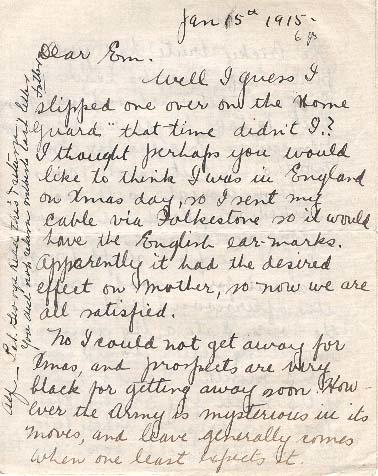 Jan 15th 1915.
6 pp
Dear Em.
Well I guess I
slipped one over on the "Home
guard" that time didn't I.?
I thought perhaps you would
like to think I was in England
on Xmas day, so I sent my
cable via Folkestone so it would
have the English ear-marks.
Apparently it had the desired
effect on Mother, so now we are
all satisfied.
No I could not get away for
Xmas, and prospects are very
black for getting away soon. How-
ever the Army is mysterious in its
moves, and leave generally comes
when one least expects it.
Alf – P.S. George read this & return
You did not return last letter
Father